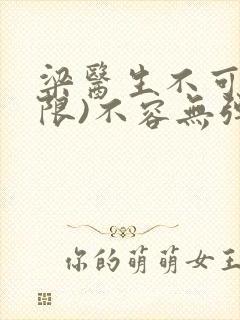 梁醫生不可
限)不容無弹
你的萌萌女王